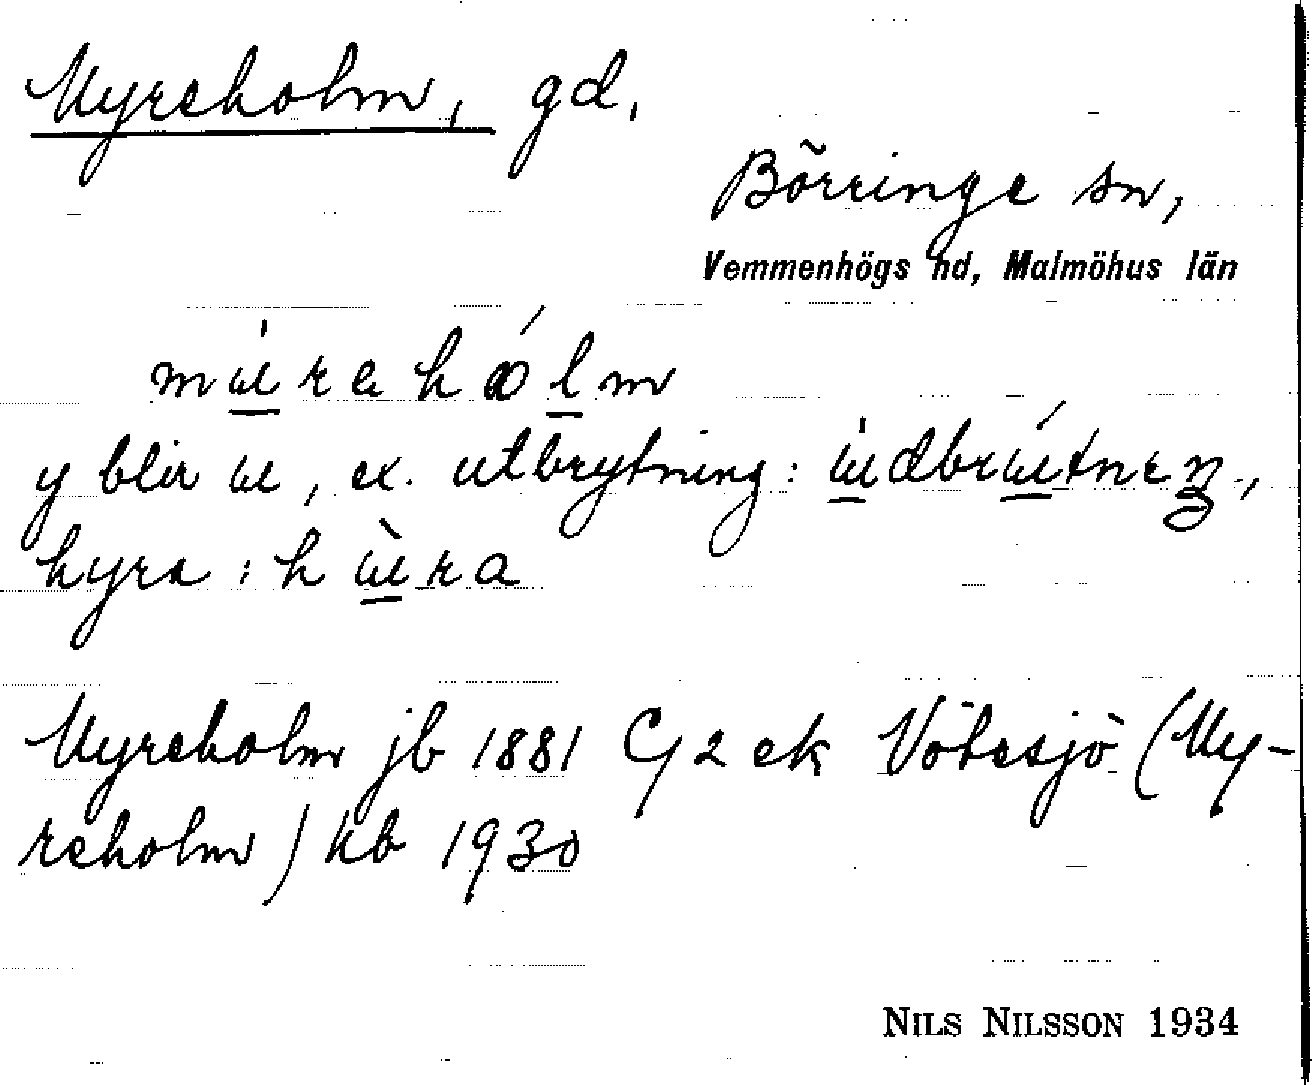 Myreholm, gd.
Börringe sn,
Vemmenhögs hd, Malmöhus län
y blir ɯ, ex. utbrytning:
hyra:
Myreholm jb 1881 C 2 ek Vöbesjö (My-
reholm) kb 1930
NILS NILSSON 1934